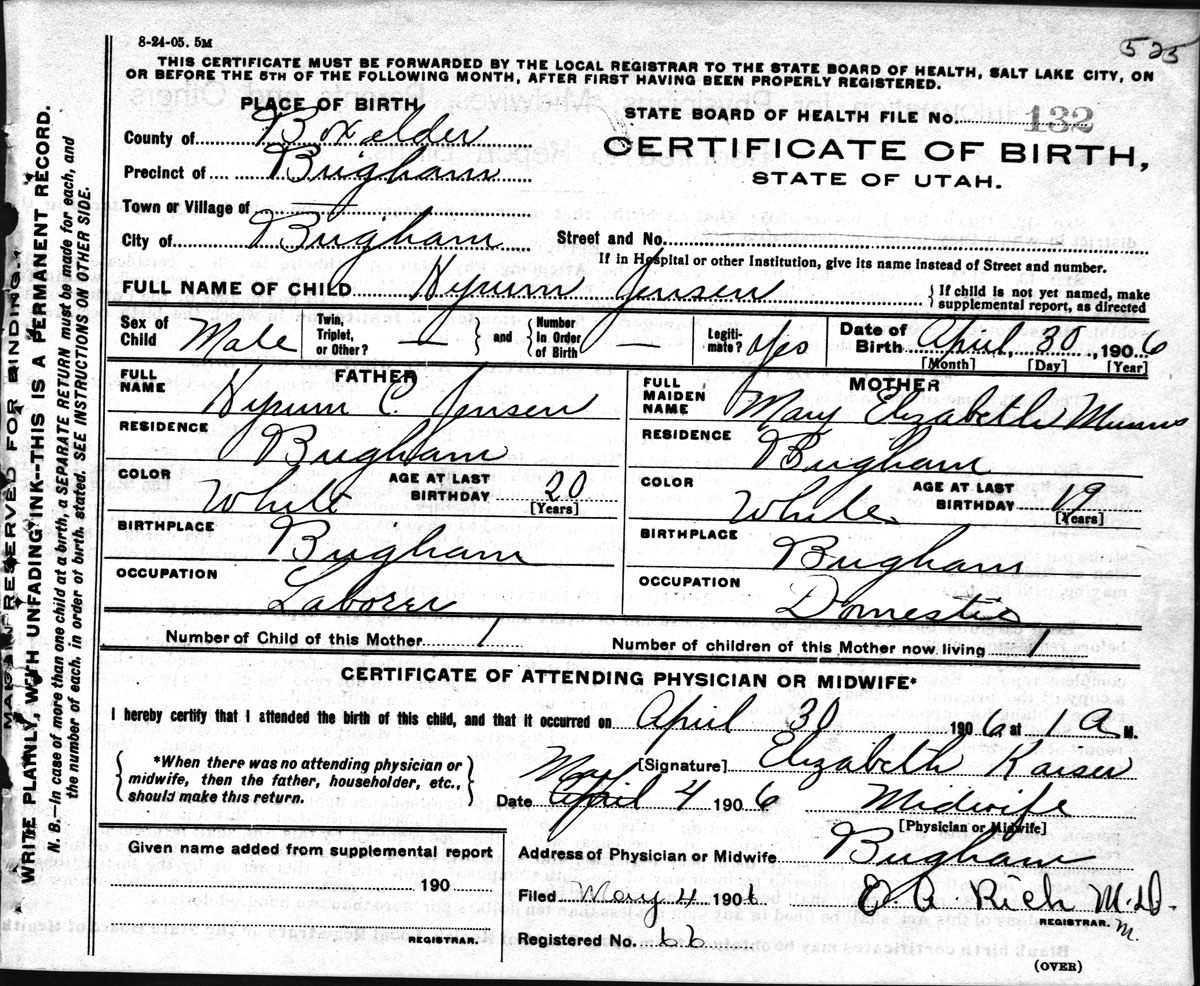 8-24-05. 5M
525
THIS CERTIFICATE MUST BE FORWARDED BY THE LOCAL REGISTRAR TO THE STATE BOARD OF HEALTH, SALT LAKE CITY, ON
OR BEFORE THE 5TH OF THE FOLLOWING MONTH, AFTER FIRST HAVING BEEN PROPERLY REGISTERED.
PLACE OF BIRTH
STATE BOARD OF HEALTH FILE No. 132
County of Boxelder
CERTIFICATE OF BIRTH,
Precinct of Brigham
STATE OF UTAH.
Town or Village of
City of Brigham
Street and No.
If in Hospital or other Institution, give its name instead of Street and number.
FULL NAME OF CHILD Hyrum Jensen
{ If child is not yet named, make
supplemental report, as directed
Sex of Child Male
Twin, Triplet, or Other? —
} and {
Number In Order of Birth —
Legiti- mate? Yes
Date of Birth April 30, 1906
[Month] [Day] [Year]
FATHER
FULL NAME Hyrum C. Jensen
RESIDENCE Brigham
COLOR White
AGE AT LAST BIRTHDAY 20
[Years]
BIRTHPLACE Brigham
OCCUPATION Laborer
MOTHER
FULL MAIDEN NAME Mary Elizabeth
RESIDENCE Brigham
COLOR White
AGE AT LAST BIRTHDAY 19
[Years]
BIRTHPLACE Brigham
OCCUPATION Domestic
Number of Child of this Mother 1
Number of children of this Mother now living 1
CERTIFICATE OF ATTENDING PHYSICIAN OR MIDWIFE*
I hereby certify that I attended the birth of this child, and that it occurred on April 30 1906 at 1 A M.
{ *When there was no attending physician or
midwife, then the father, householder, etc.,
should make this return. }
[Signature] Elizabeth Kaiser
May
Date April 4 1906
Midwife
[Physician or Midwife]
Given name added from supplemental report
190
REGISTRAR.
Address of Physician or Midwife Brigham
Filed May 4 1906
E A Rich M.D.
REGISTRAR.
M.
Registered No. 66
(OVER)
MARGIN RESERVED FOR BINDING.
WRITE PLAINLY, WITH UNFADING INK--THIS IS A PERMANENT RECORD.
N. B.—In case of more than one child at a birth, a SEPARATE RETURN must be made for each, and
the number of each, in order of birth, stated. SEE INSTRUCTIONS ON OTHER SIDE.